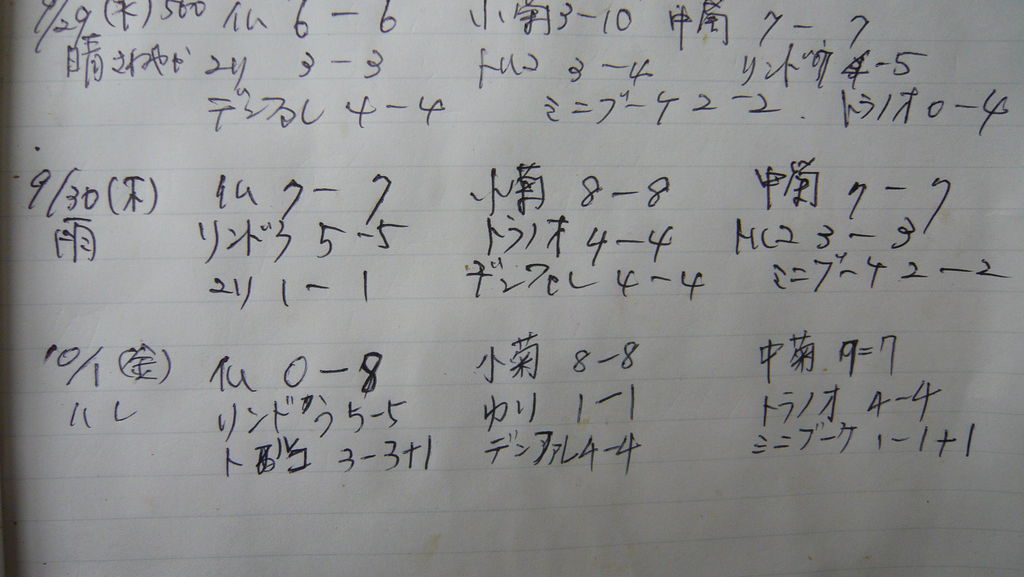 9/29 (水) 500 仏 6-6 小菊 3-10 中菊 7-7
晴 さわやか ユリ 3-3 トルコ 3-4 リンドウ 4-5
デンファレ 4-4 ミニブーケ 2-2 トラノオ 0-4
9/30 (木) 仏 7-7 小菊 8-8 中菊 7-7
雨 リンドウ 5-5 トラノオ 4-4 トルコ 3-3
ユリ 1-1 デンファレ 4-4 ミニブーケ 2-2
10/1 (金) 仏 0-8 小菊 8-8 中菊 7=7
ハレ リンドウ 5-5 ゆり 1-1 トラノオ 4-4
3-3+1 デンファレ 4-4 ミニブーケ 1-1+1